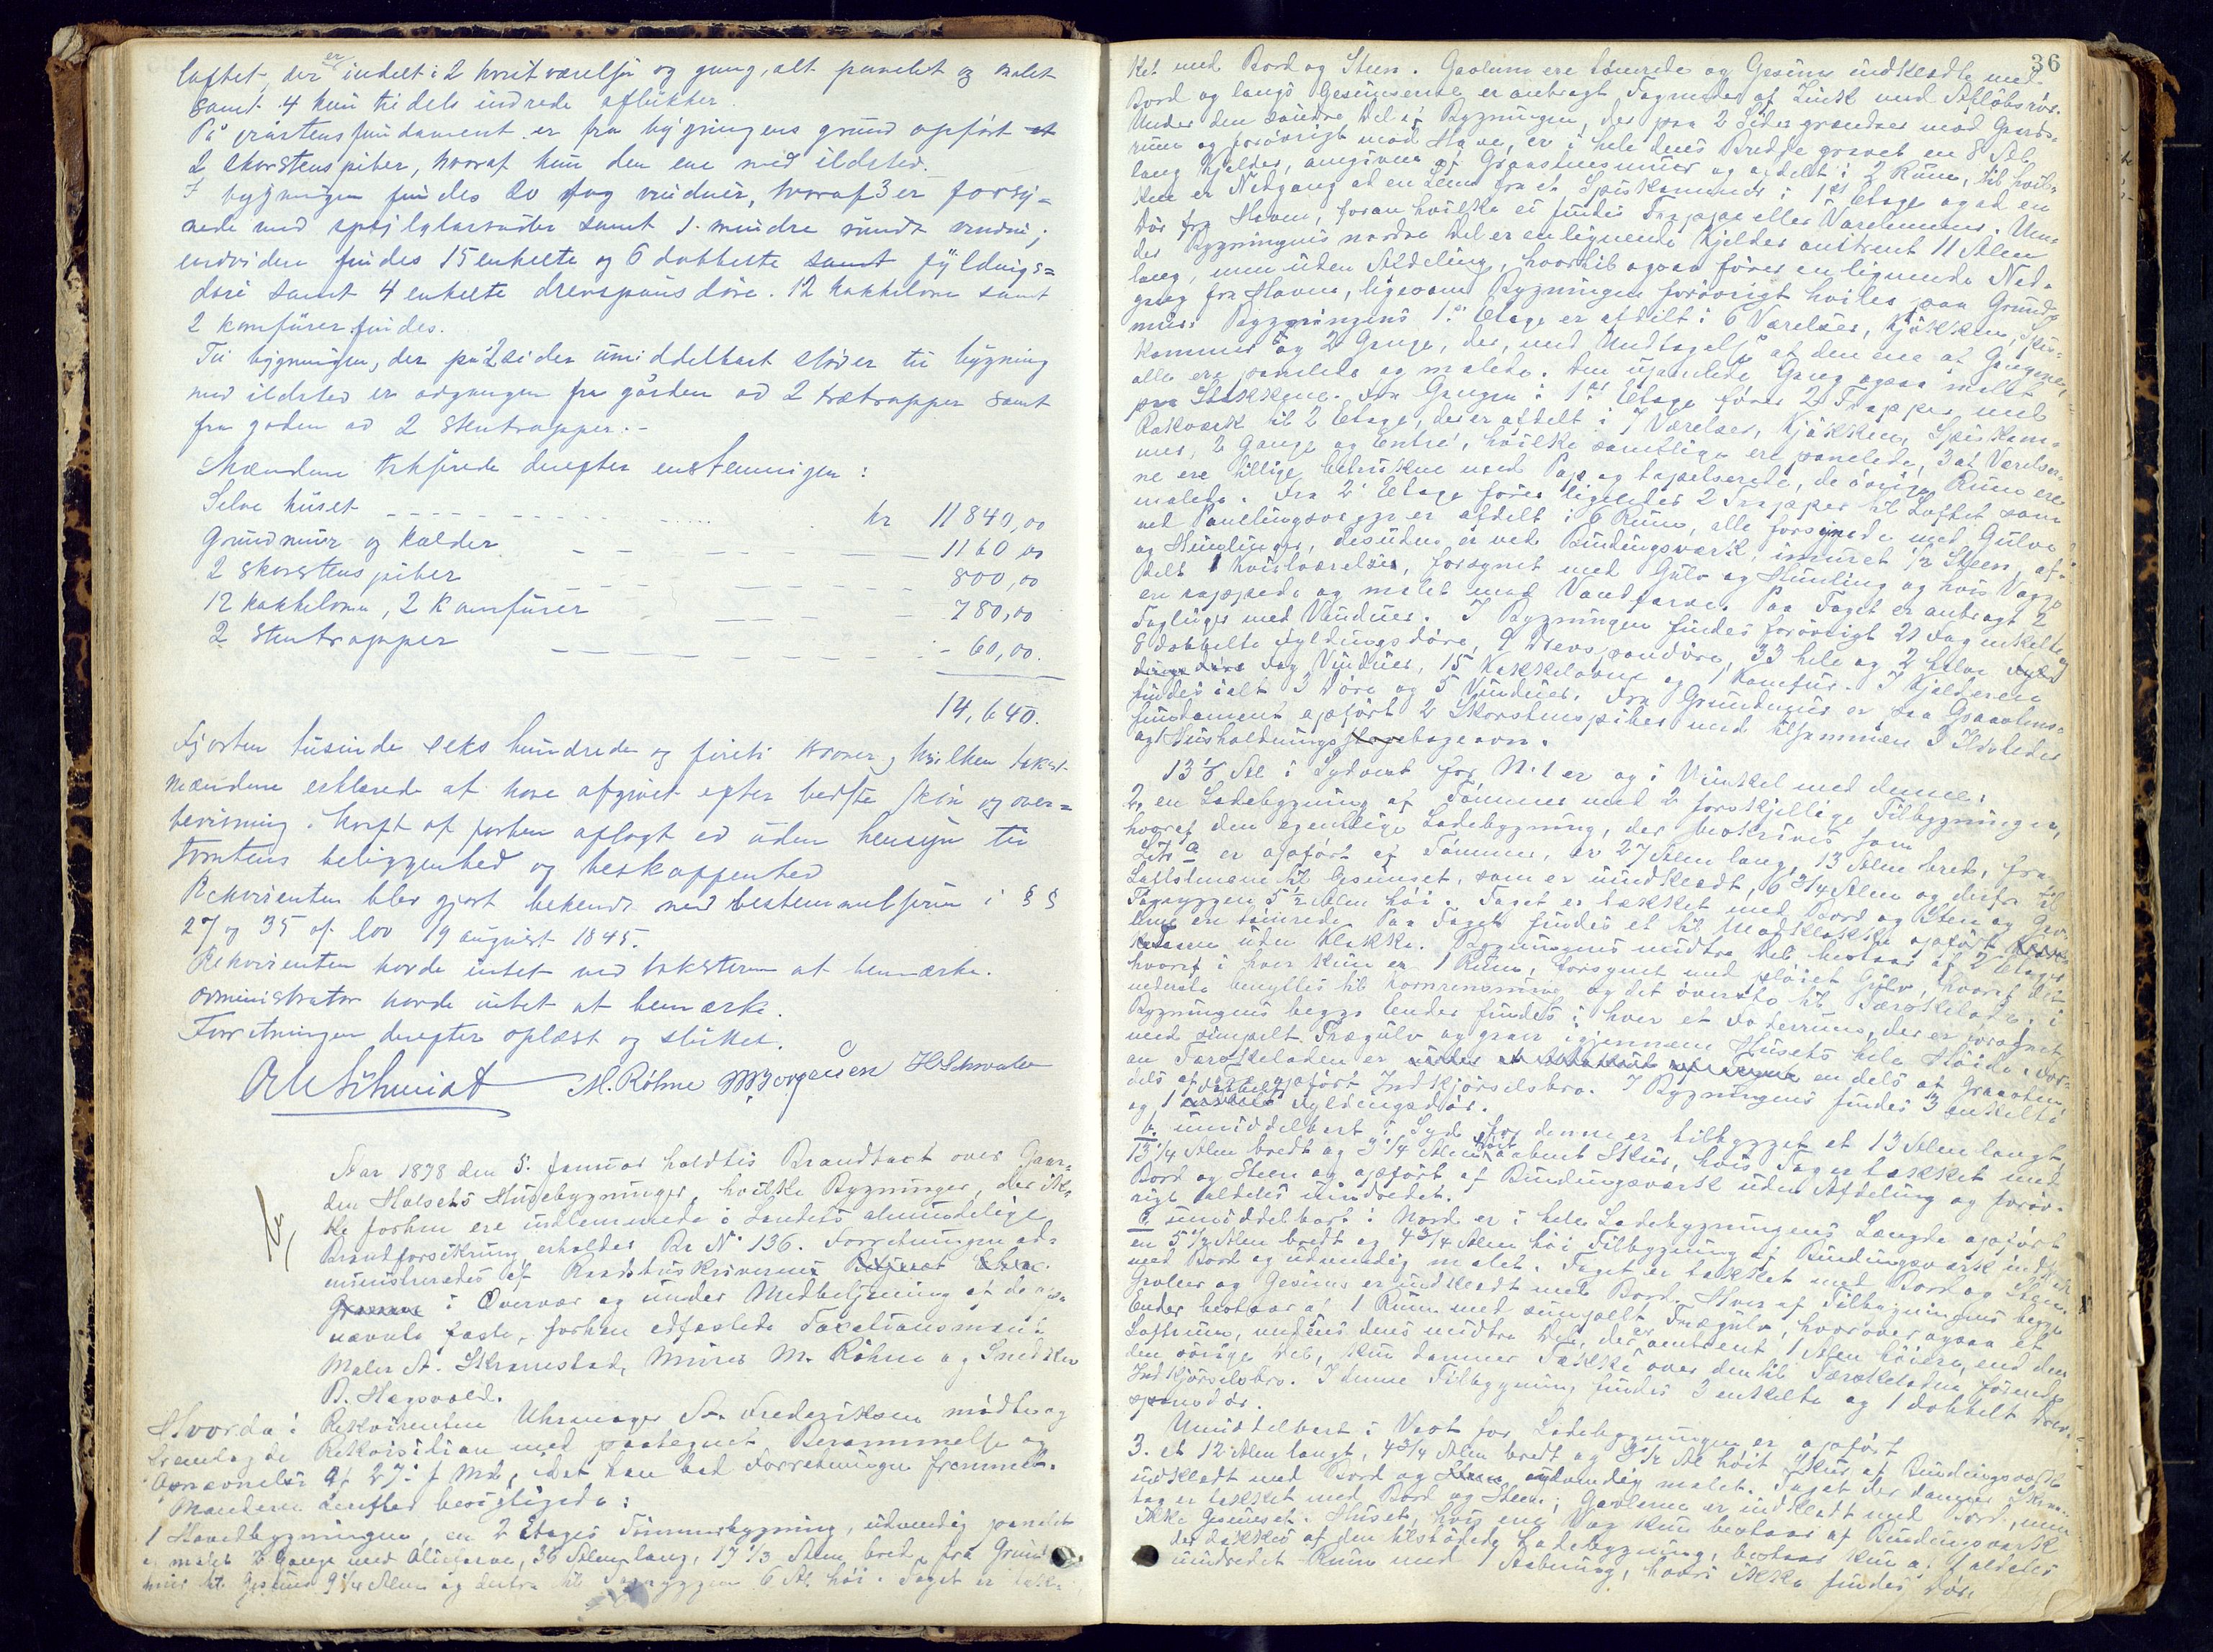 loftet, der er indelt i 2 kvistværelser og gang, alt panelet og malet
samt 4 kun tildels indrede aflukker.
På gråstensfundament er fra bygningens grund opført
2 skorstenspiber, hvoraf kun den ene med ildsted.
I bygningen findes 20 fag vinduer, hvoraf 3 er forsy=
nede med speilglasruder samt 1 mindre rundt vindu;
endvidere findes 15 enkelte og 6 dobbelte samt fyldnings=
døre samt 4 enkelte drevspansdøre. 12 kakkelovne samt
2 komfurer findes.
Til bygningen, der på 2 sider umiddelbart støder til bygning
med ildsted er adgangen fra gården ad 2 trætrapper samt
fra gaden ad 2 stentrapper.-
Mændene taksterede derefter enstemmigen:
Selve huset kr 11840,00
Grundmur og kælder 1160,00
2 skorstenspiber 800,00
12 kakkelovne, 2 komfurer 780,00
2 stentrapper 60,00.
14,640.
Fjorten tusinde seks hundrede og firti kroner, hvilken takst
mændene erklærede at have afgivet efter bedste skøn og over=
bevisning i kraft af forhen aflagt ed uden hensyn til
tomtens beliggenhed og beskaffenhed
Rekvirenten blev gjort bekendt med bestemmelserne i §§
27 og 35 af lov 19 august 1845.
Rekvirenten havde intet ved taksten at bemærke.
Administrator havde intet at bemærke.
Forretningen derefter oplæst og sluttet.
M. Röhne Jørgensen H Schwabe
Aar 1898 den 5. Januar holdtes Brandtaxt over Gaar=
den Holsets Husebygninger, hvilke Bygninger, der ik=
ke forhen ere indlemmede i Landets almindelige
Brandforsikring erholder Br No 136. Forretningen ad=
ministreredes af Raadstuskriveren
i Overvær og under Medbetjening af de
nævnte faste, forhen edfæstede Taxationsmænd
Maler A. Skramstad, Murer M. Röhne og Snedker
B. Hagsvold.
Hvorda: Rekvirenten Uhrmager Fredriksen mødte og
fremlagde Rekvisition med paategnet Berammelse og
Opnævnelse af 27. f. Md., idet han bad Forretningen fremmet.
Mændene derefter besigtigede:
1 Hovedbygningen, en 2 Etages Tømmerbygning, udvendig panelet
og malet 2 Gange med Oliefarve, 36 Alen lang, 17 1/3 Alen bred, fra Grund
mur til Gesims 9 1/4 Alen og derfra til Tagryggen 6 Al. høi. Taget er tæk=
36
ket med Bord og Steen. Gavlene ere tømrede og Gesims indklædte med
Bord og langs Gesimserne er anbragt Tagrender af Zink med Afløbsrør.
Under den søndre Del af Bygningen, der paa 2 Sider grændser mod Gaards=
rum og forøvrigt mod Have, er i hele dens Bredde gravet en 8 Al.
lang Kjelder, omgiven af Graasteensmuur og afdelt i 2 Rum, til hvil=
ken er Nedgang ad en Lem fra et Spiskammer i 1ste Etage og ad en
Dør fra Haven, foran hvilke ei findes Trappe eller Værelemmer. Un=
der Bygningens nordre Del er en lignende Kjelder omtrent 11 Alen
lang, men uden Afdeling, hvortil ogsaa fører en lignende Ned=
gang fra Haven, ligesom Bygningen forøvrigt hviler paa Grund=
mur. Bygningens 1ste Etage er afdelt i 6 Værelser, Kjøkken, Spis=
kammer og 2 Gange, der, med Undtagelse af den ene af Gangene,
alle ere panelede og malede. Den upanelede Gang ogsaa malet
paa Stokkene. Fra Gangen i 1ste Etage fører 2 Trapper med
Rækværk til 2 Etage, der er afdelt i 7 Værelser, Kjøkken, Spiskam=
mer, 2 Gange og Entré, hvilke samtlige ere panelede, 3 af Værelser=
ne ere tillige betrukne med Pap og tapetserede, de øvrige Rum ere
malede. Fra 2 Etage fører ligeledes 2 Trapper til Loftet som
ved Panelingsvægge er afdelt i 6 Rum, alle forsynede med Gulve
og Himlinger, desuden er ved Bindingsværk, inmuret 1/2 Steen, af=
delt 1 Kvistværelse, forsynet med Gulv og Himling og hvis Vægge
ere rappede og malet med Vandfarve. Paa Taget er anbragt 2
Tagluger med Vinduer. I Bygningen findes forøvrigt 21 Fag enkelte og
8 dobbelte Fyldingsdøre, 9 Drevspandøre, 33 hele og 2 halve
Fag Vinduer, 15 Kakkelovne og 1 Komfur. I Kjelderen
findes ialt 3 Døre og 5 Vinduer. Fra Grundmur er paa Graasteens=
fundament opført 2 Skorsteenspiber med tilsammen 3 Ildsteder
og Huusholdningsbageovn.
13 1/8 Al i Sydvest for No 1 er og i Vinkel med denne:
2, en Ladebygning af Tømmer med 2 forskjellige Tilbygninger,
hvoraf den egentlige Ladebygning, der beskrives som
Litr a er opført af Tømmer, er 27 Alen lang, 13 Alen bred, fra
til Gesimset, som er uindklædt, 6 3/4 Alen og derfra til
Tagryggen 5 1/2 Alen høi. Taget er tækket med Bord og Steen og Gav=
lene ere tømrede. Paa Taget findes et til Madklokke opført
uden Klokke. Bygningens midtre Del bestaar af 2 Etager
hvoraf i hver kun er 1 Rum, forsynet med pløiet Gulv, hvoraf det
nederste benyttes til Kornrensning og det øverste til Tærskelade. I
Bygningens begge Ender findes i hver et Foderrum, der er forsynet
med simpelt Trægulv og gaar igjennem Husets hele Høide. For=
an Tærskeladen er endels af Graasten,
dels af opført Indkjørselsbro. I Bygningens findes 3 enkelte
og 1 dobbelt Fyldingsdør.
b. umiddelbart i Syd for denne er tilbygget et 13 Alen langt
13 1/4 Alen bredt og 3 1/4 Alen høit aabent Skur, hvis Tag er tækket med
Bord og Steen og opført af Bindingsværk uden Afdeling og forøv=
rigt aldeles uindredet.
c, umiddelbart i Nord er i hele Ladebygningens Længde opført
en 5 1/2 Alen bredt og 4 3/4 Alen høi Tilbygning af Bindingsværk indklædt
med Bord og udvendig malet. Taget er tækket med Bord og Steen.
Gavler og Gesims er indklædt med Bord. Hver af Tilbygningens begge
Ender bestaar af 1 Rum med simpelt Trægulv, hvorover ogsaa et
Loftsrum, medens dens midtre Del, der er omtrent 1 Alen høiere, end den
den øvrige Del, kun danner Tække over den til Tærskeladen førende
Indkjørselsbro. I denne Tilbygning findes 3 enkelte og 1 dobbelt Drev=
spansdør.
Umiddelbart i Vest for Ladebygningen er opført
3. et 12 Alen langt, 4 3/4 Alen bredt og 3 1/2 Al høit Skur af Bindingsværk
indklædt med Bord og udvendig malet. Taget der danner
tag er tækket med Bord og Steen; Gavlerne er indklædt med Bord, men
ikke Gesimset. Huset, hvis ene Væg kun bestaar af Bindingsværk
der dækkes af den tilstødende Ladebygning, bestaar kun af 1 aldeles
uindredet Rum med 1 Aabning, hvori ikke findes Dør.